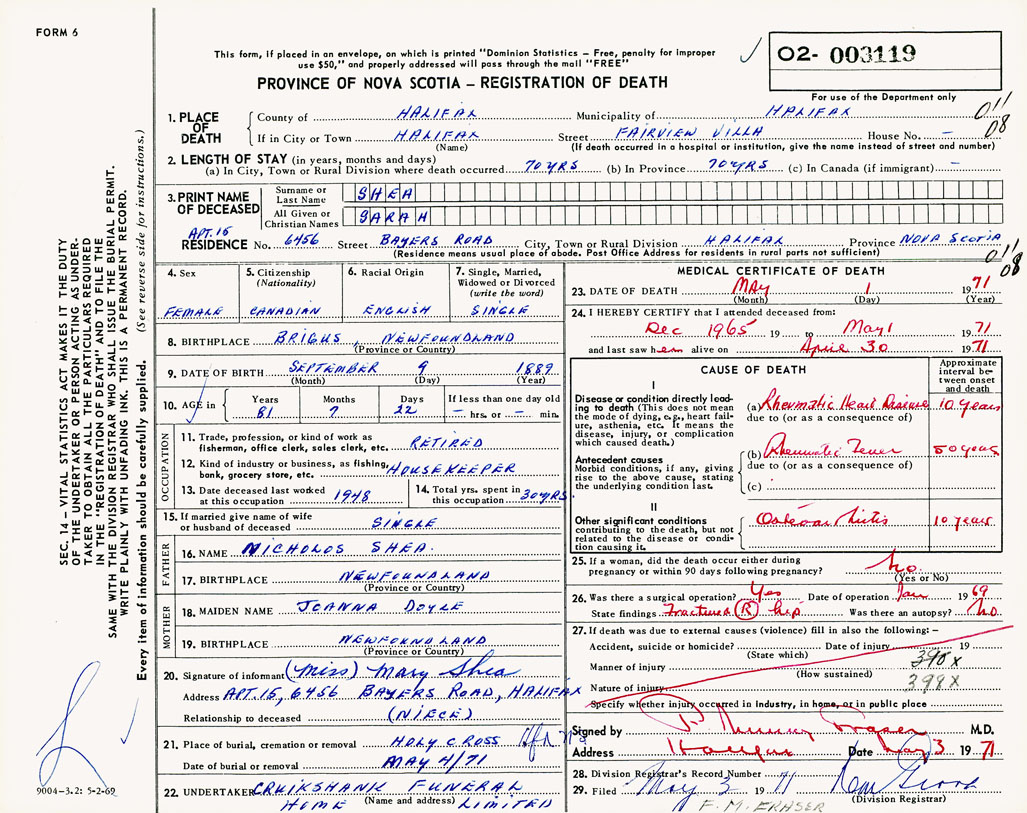 FORM 6
This form, if placed in an envelope, on which is printed "Dominion Statistics – Free, penalty for improper
use $50," and properly addressed will pass through the mail "FREE"
O2- 003119
PROVINCE OF NOVA SCOTIA – REGISTRATION OF DEATH
For use of the Department only
1. PLACE OF DEATH
County of HALIFAX Municipality of HALIFAX
If in City or Town HALIFAX Street FAIRVIEW VILLA House No. –
(Name) (If death occurred in a hospital or institution, give the name instead of street and number)
011
08
2. LENGTH OF STAY (in years, months and days)
(a) In City, Town or Rural Division where death occurred 70 YRS (b) In Province 70 YRS (c) In Canada (if immigrant) –
3. PRINT NAME OF DECEASED
Surname or Last Name SHEA
All Given or Christian Names SARAH
APT. 15
RESIDENCE No. 6456 Street BAYERS ROAD City, Town or Rural Division HALIFAX Province NOVA SCOTIA
(Residence means usual place of abode. Post Office Address for residents in rural parts not sufficient)
011
08
4. Sex
FEMALE
5. Citizenship
(Nationality)
CANADIAN
6. Racial Origin
ENGLISH
7. Single, Married,
Widowed or Divorced
(write the word)
SINGLE
8. BIRTHPLACE BRIGUS, NEWFOUNDLAND
(Province or Country)
9. DATE OF BIRTH SEPTEMBER 9 1889
(Month) (Day) (Year)
10. AGE in
Years Months Days If less than one day old
81 7 22 – hrs. or – min.
OCCUPATION
11. Trade, profession, or kind of work as
fisherman, office clerk, sales clerk, etc. RETIRED
12. Kind of industry or business, as fishing,
bank, grocery store, etc. HOUSEKEEPER
13. Date deceased last worked
at this occupation 1948
14. Total yrs. spent in
this occupation 30 YRS
15. If married give name of wife
or husband of deceased SINGLE
FATHER
16. NAME NICHOLOS SHEA.
17. BIRTHPLACE NEWFOUNDLAND
(Province or Country)
MOTHER
18. MAIDEN NAME JOANNA DOYLE
19. BIRTHPLACE NEWFOUNDLAND
(Province or Country)
20. Signature of informant (Miss) Mary Shea
Address APT. 15, 6456 BAYERS ROAD, HALIFAX
Relationship to deceased (NIECE)
21. Place of burial, cremation or removal HOLY CROSS Hfx NS
Date of burial or removal MAY 4/71
22. UNDERTAKER CRUIKSHANK FUNERAL
HOME (Name and address) LIMITED
MEDICAL CERTIFICATE OF DEATH
23. DATE OF DEATH MAY 1 1971
(Month) (Day) (Year)
24. I HEREBY CERTIFY that I attended deceased from:
Dec 1965 19 to May 1 1971
and last saw her alive on April 30 1971
CAUSE OF DEATH
Approximate
interval be-
tween onset
and death
I
Disease or condition directly lead-
ing to death (This does not mean
the mode of dying, e.g., heart fail-
ure, asthenia, etc. It means the
disease, injury, or complication
which caused death.)
(a) Rheumatic Heart Disease 10 years
due to (or as a consequence of)
Antecedent causes
Morbid conditions, if any, giving
rise to the above cause, stating
the underlying condition last.
(b) Rheumatic Fever 50 years
due to (or as a consequence of)
(c)
II
Other significant conditions
contributing to the death, but not
related to the disease or condi-
tion causing it.
Osteoarthritis 10 years
25. If a woman, did the death occur either during
pregnancy or within 90 days following pregnancy? no
(Yes or No)
26. Was there a surgical operation? Yes Date of operation Jan 1969
State findings Fractured (R) hip Was there an autopsy? no
27. If death was due to external causes (violence) fill in also the following: –
Accident, suicide or homicide? Date of injury 19
(State which)
Manner of injury 390x
(How sustained)
Nature of injury 398x
Specify whether injury occurred in industry, in home, or in public place
Signed by Murray Fraser M.D.
Address Halifax Date May 3 1971
28. Division Registrar's Record Number
29. Filed May 3 1971
(Division Registrar)
F. M. FRASER
SEC. 14 – VITAL STATISTICS ACT MAKES IT THE DUTY
OF THE UNDERTAKER OR PERSON ACTING AS UNDER-
TAKER TO OBTAIN ALL THE PARTICULARS REQUIRED
IN THE "REGISTRATION OF DEATH" AND TO FILE THE
SAME WITH THE DIVISION REGISTRAR WHO SHALL ISSUE THE BURIAL PERMIT.
WRITE PLAINLY WITH UNFADING INK. THIS IS A PERMANENT RECORD.
Every item of information should be carefully supplied. (See reverse side for instructions.)
9004-3.2: 5-2-69